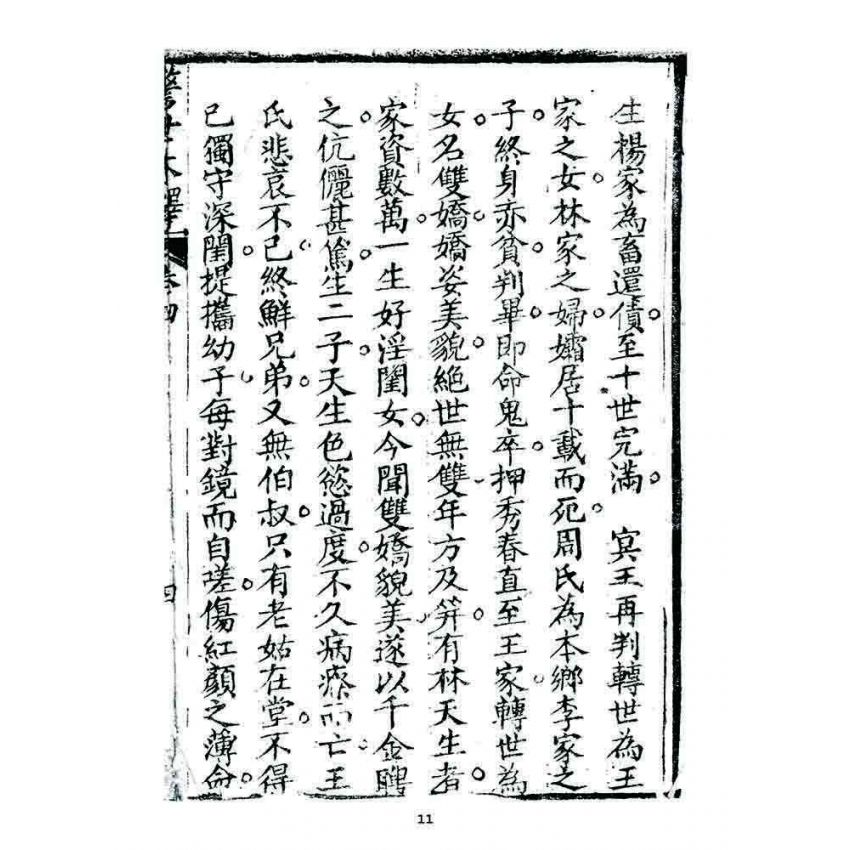 生楊家為畜還債至十世完滿　冥王再判轉世為王
家之女林家之婦孀居十載而死周氏為本鄉李家之
子終身亦貧判畢即命鬼卒押秀春直至王家轉世為
女名雙嬌嬌姿美貌絕世無雙年方及笄有林天生者
家資數萬一生好淫閨女今聞雙嬌貌美遂以千金聘
之伉儷甚篤生二子天生色慾過度不久病瘵而亡王
氏悲哀不已終鮮兄弟又無伯叔只有老姑在堂不得
已獨守深閨提攜幼子每對鏡而自嗟傷紅顏之薄命
卷四
四
11